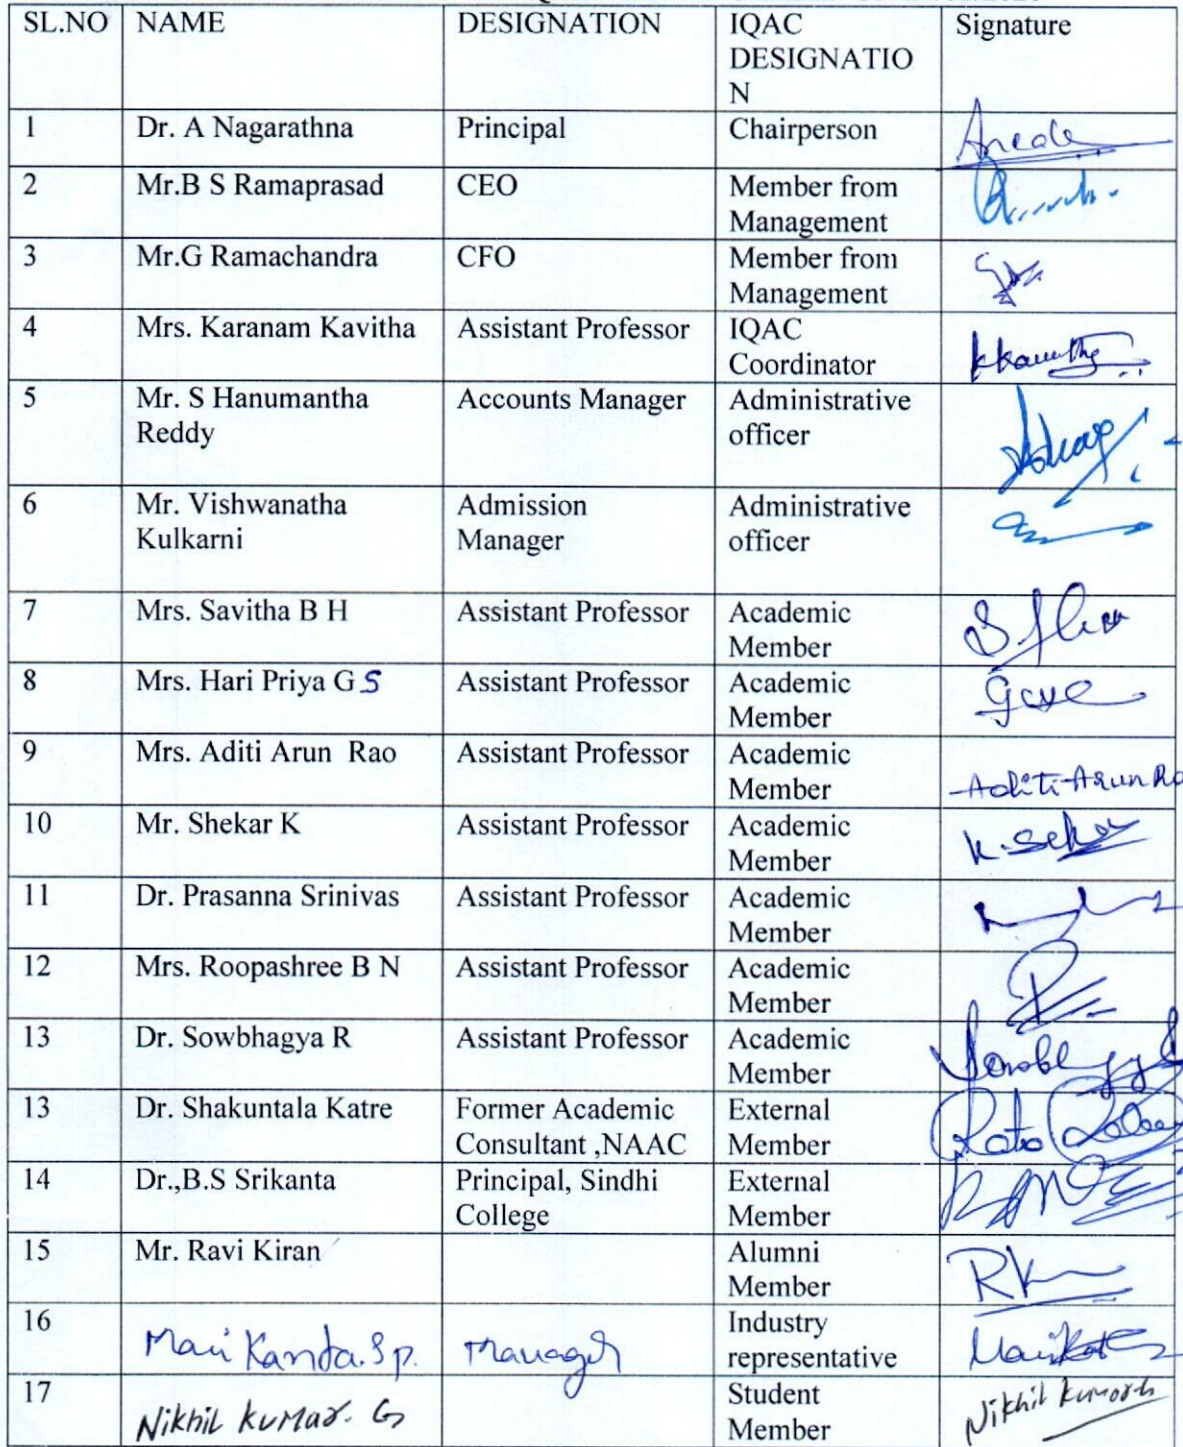 SL.NO NAME DESIGNATION IQAC Signature
DESIGNATIO
N
1 Dr. A Nagarathna Principal Chairperson
2 Mr.B S Ramaprasad CEO Member from
Management
3 Mr.G Ramachandra CFO Member from
Management
4 Mrs. Karanam Kavitha Assistant Professor IQAC
Coordinator
5 Mr. S Hanumantha Accounts Manager Administrative
Reddy officer
6 Mr. Vishwanatha Admission Administrative
Kulkarni Manager officer
7 Mrs. Savitha B H Assistant Professor Academic
Member
8 Mrs. Hari Priya G S Assistant Professor Academic
Member
9 Mrs. Aditi Arun Rao Assistant Professor Academic
Member Aditi Arun Ra
10 Mr. Shekar K Assistant Professor Academic
Member
11 Dr. Prasanna Srinivas Assistant Professor Academic
Member
12 Mrs. Roopashree B N Assistant Professor Academic
Member
13 Dr. Sowbhagya R Assistant Professor Academic
Member
13 Dr. Shakuntala Katre Former Academic External
Consultant ,NAAC Member
14 Dr.,B.S Srikanta Principal, Sindhi External
College Member
15 Mr. Ravi Kiran Alumni
Member
16 Industry
Mani Kanta.S p. Manager representative
17 Student
Nikhil kumar. G Member Nikhil kumar G